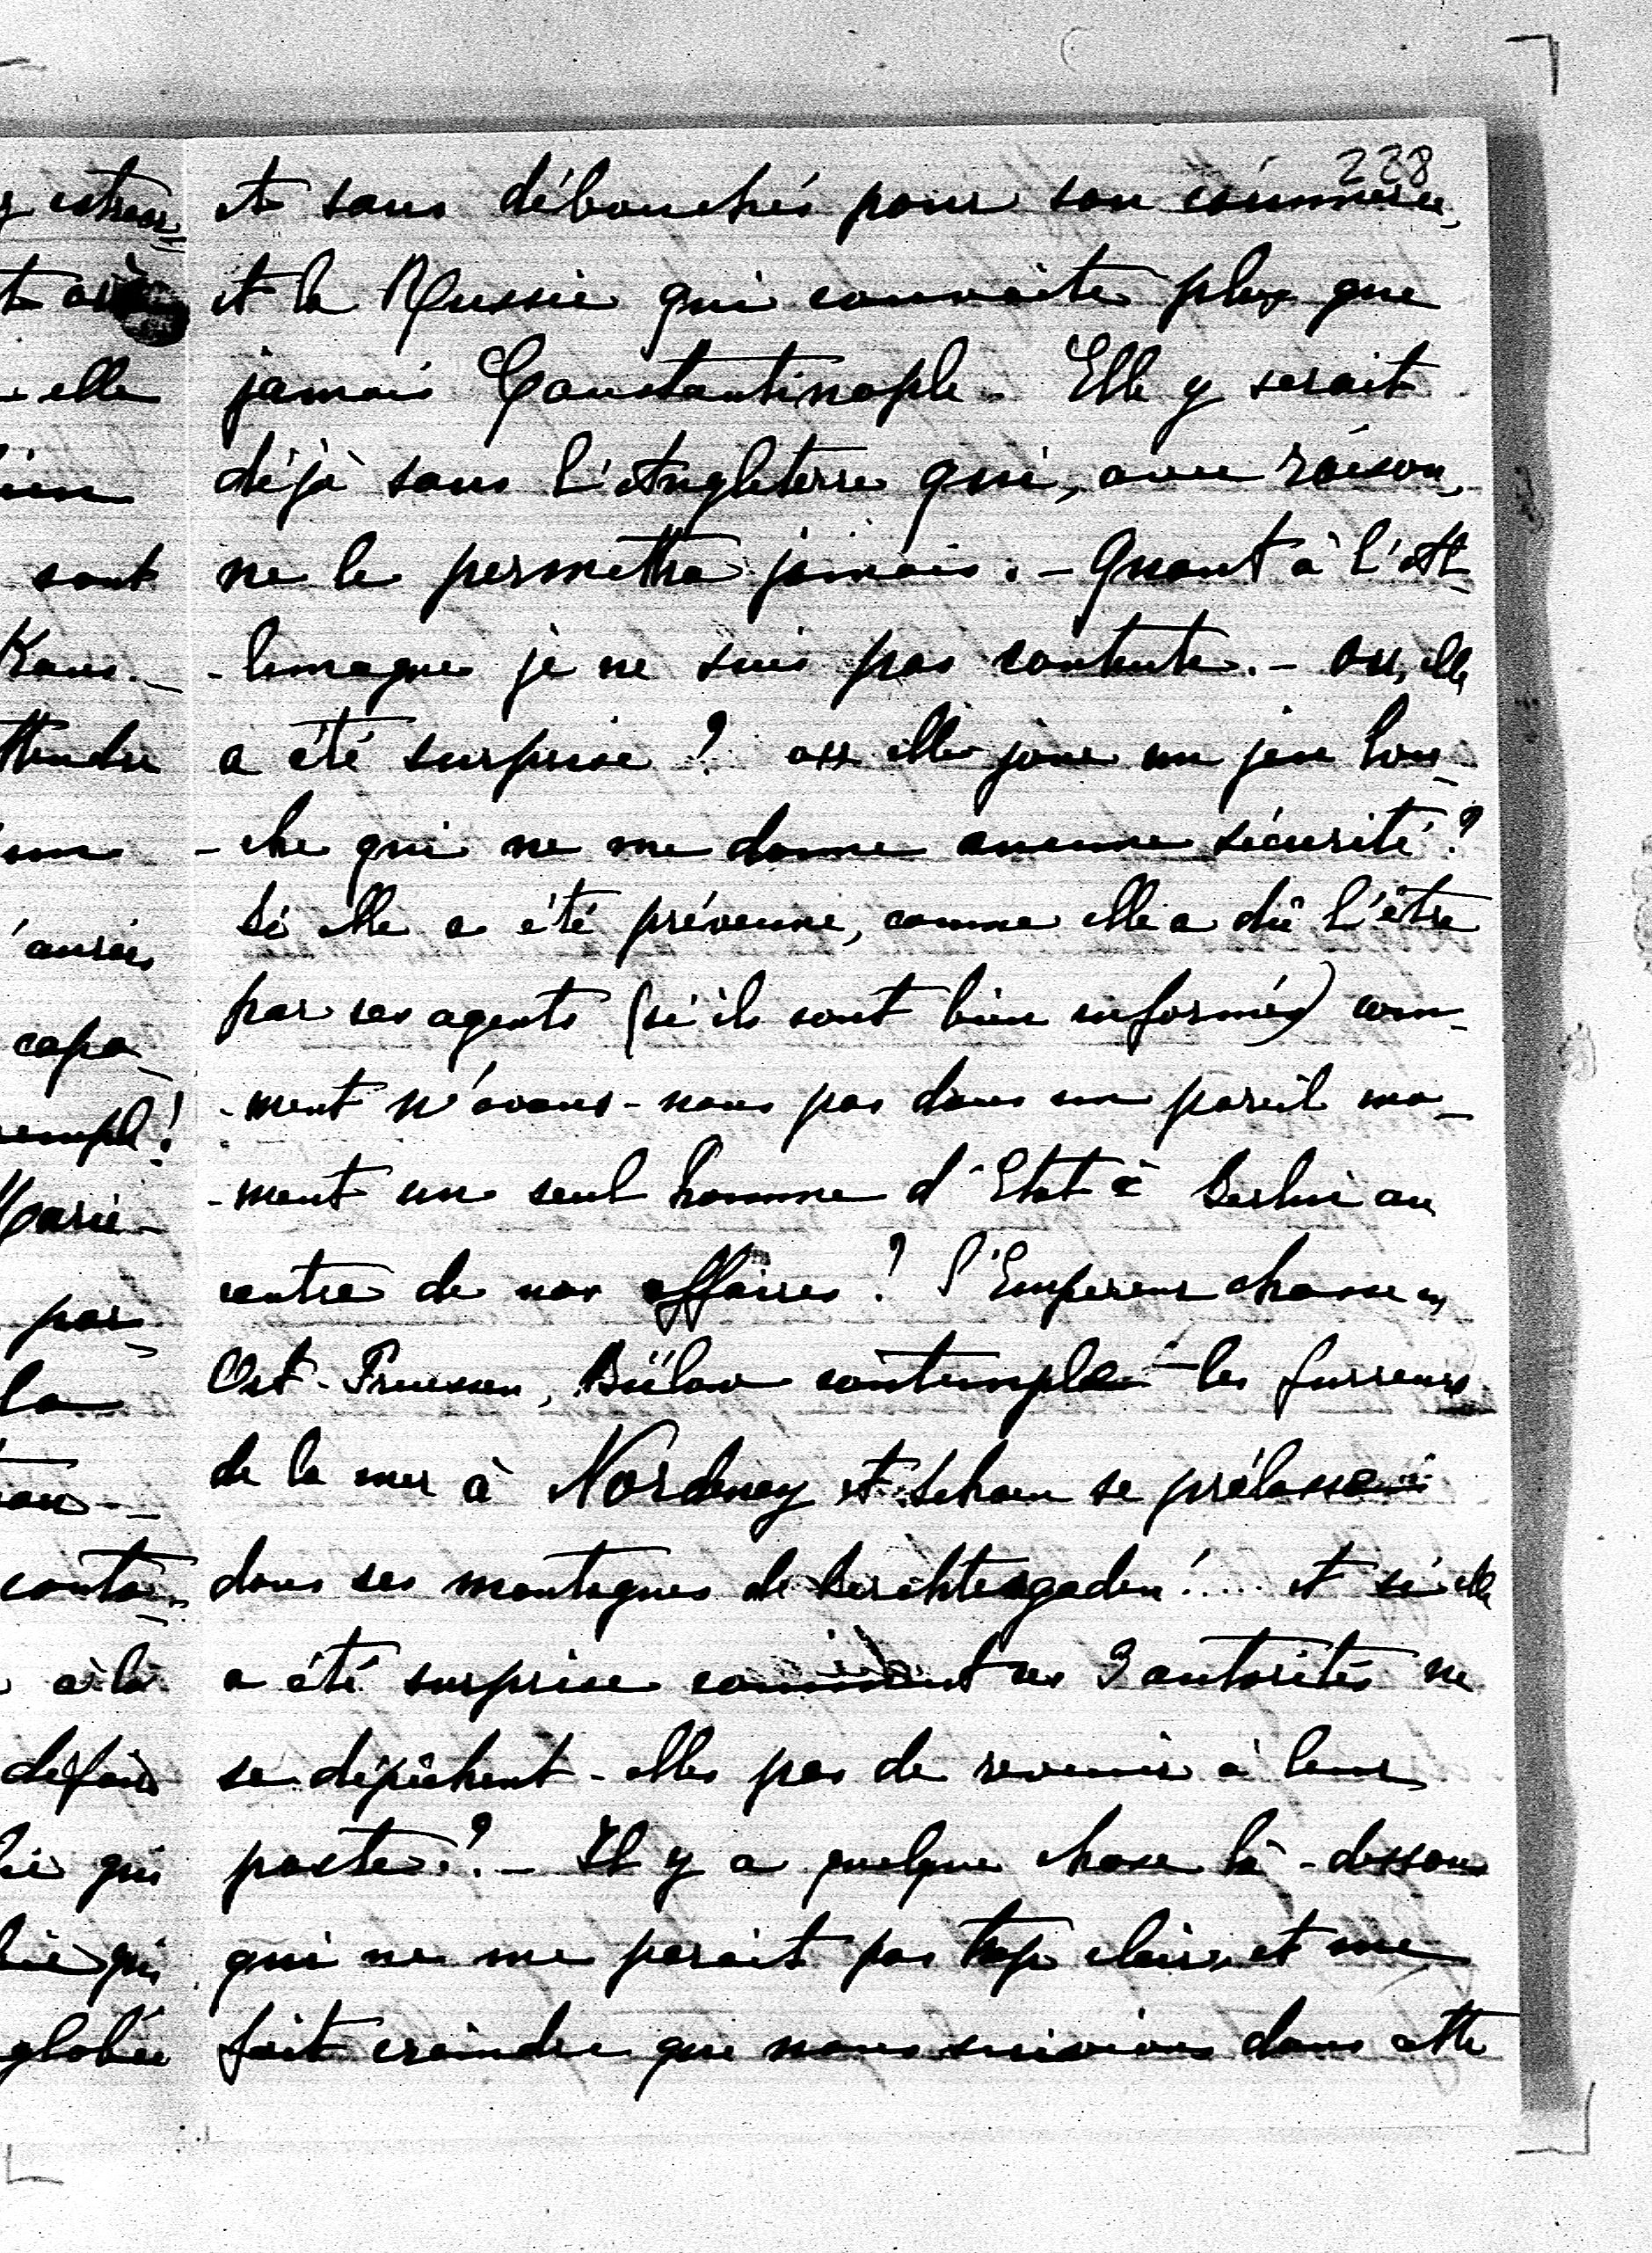 228
et sans débouchés pour son commerce,
et la Russie qui convoite plus que
jamais Constantinople. Elle y serait
déjà sans l'Angleterre qui, avec raison,
ne le permettra jamais. - Quant à l'Al-
-lemagne je ne suis pas contente. - ou, elle
a été surprise? ou elle joue un jeu lou-
-che qui ne me donne aucune sécurité?
Si elle a été prévenue, comme elle a dû l'être
par ses agents (si ils sont bien informés) com-
-ment n'avons-nous pas dans un pareil mo-
-ment un seul homme d'Etat à Berlin au
centre de nos affaires? l'Empereur chasse en
Ost-Preussen, Bülow contemple les fureurs
de la mer à Norderney et Schoen se prélasse
dans ses montagnes de Berchtesgaden!.... et si elle
a été surprise comment ces 3 autorités ne
se dépêchent-elles pas de revenir à leur
poste?. - Il y a quelque chose là-dessous
qui ne me parait pas trop clair, et me
fait craindre que nous suivions dans cette
elle
sont
ttendre
un
'aurais
capa-
Marie-
par-
la
à la
défais
qui
qui
globée